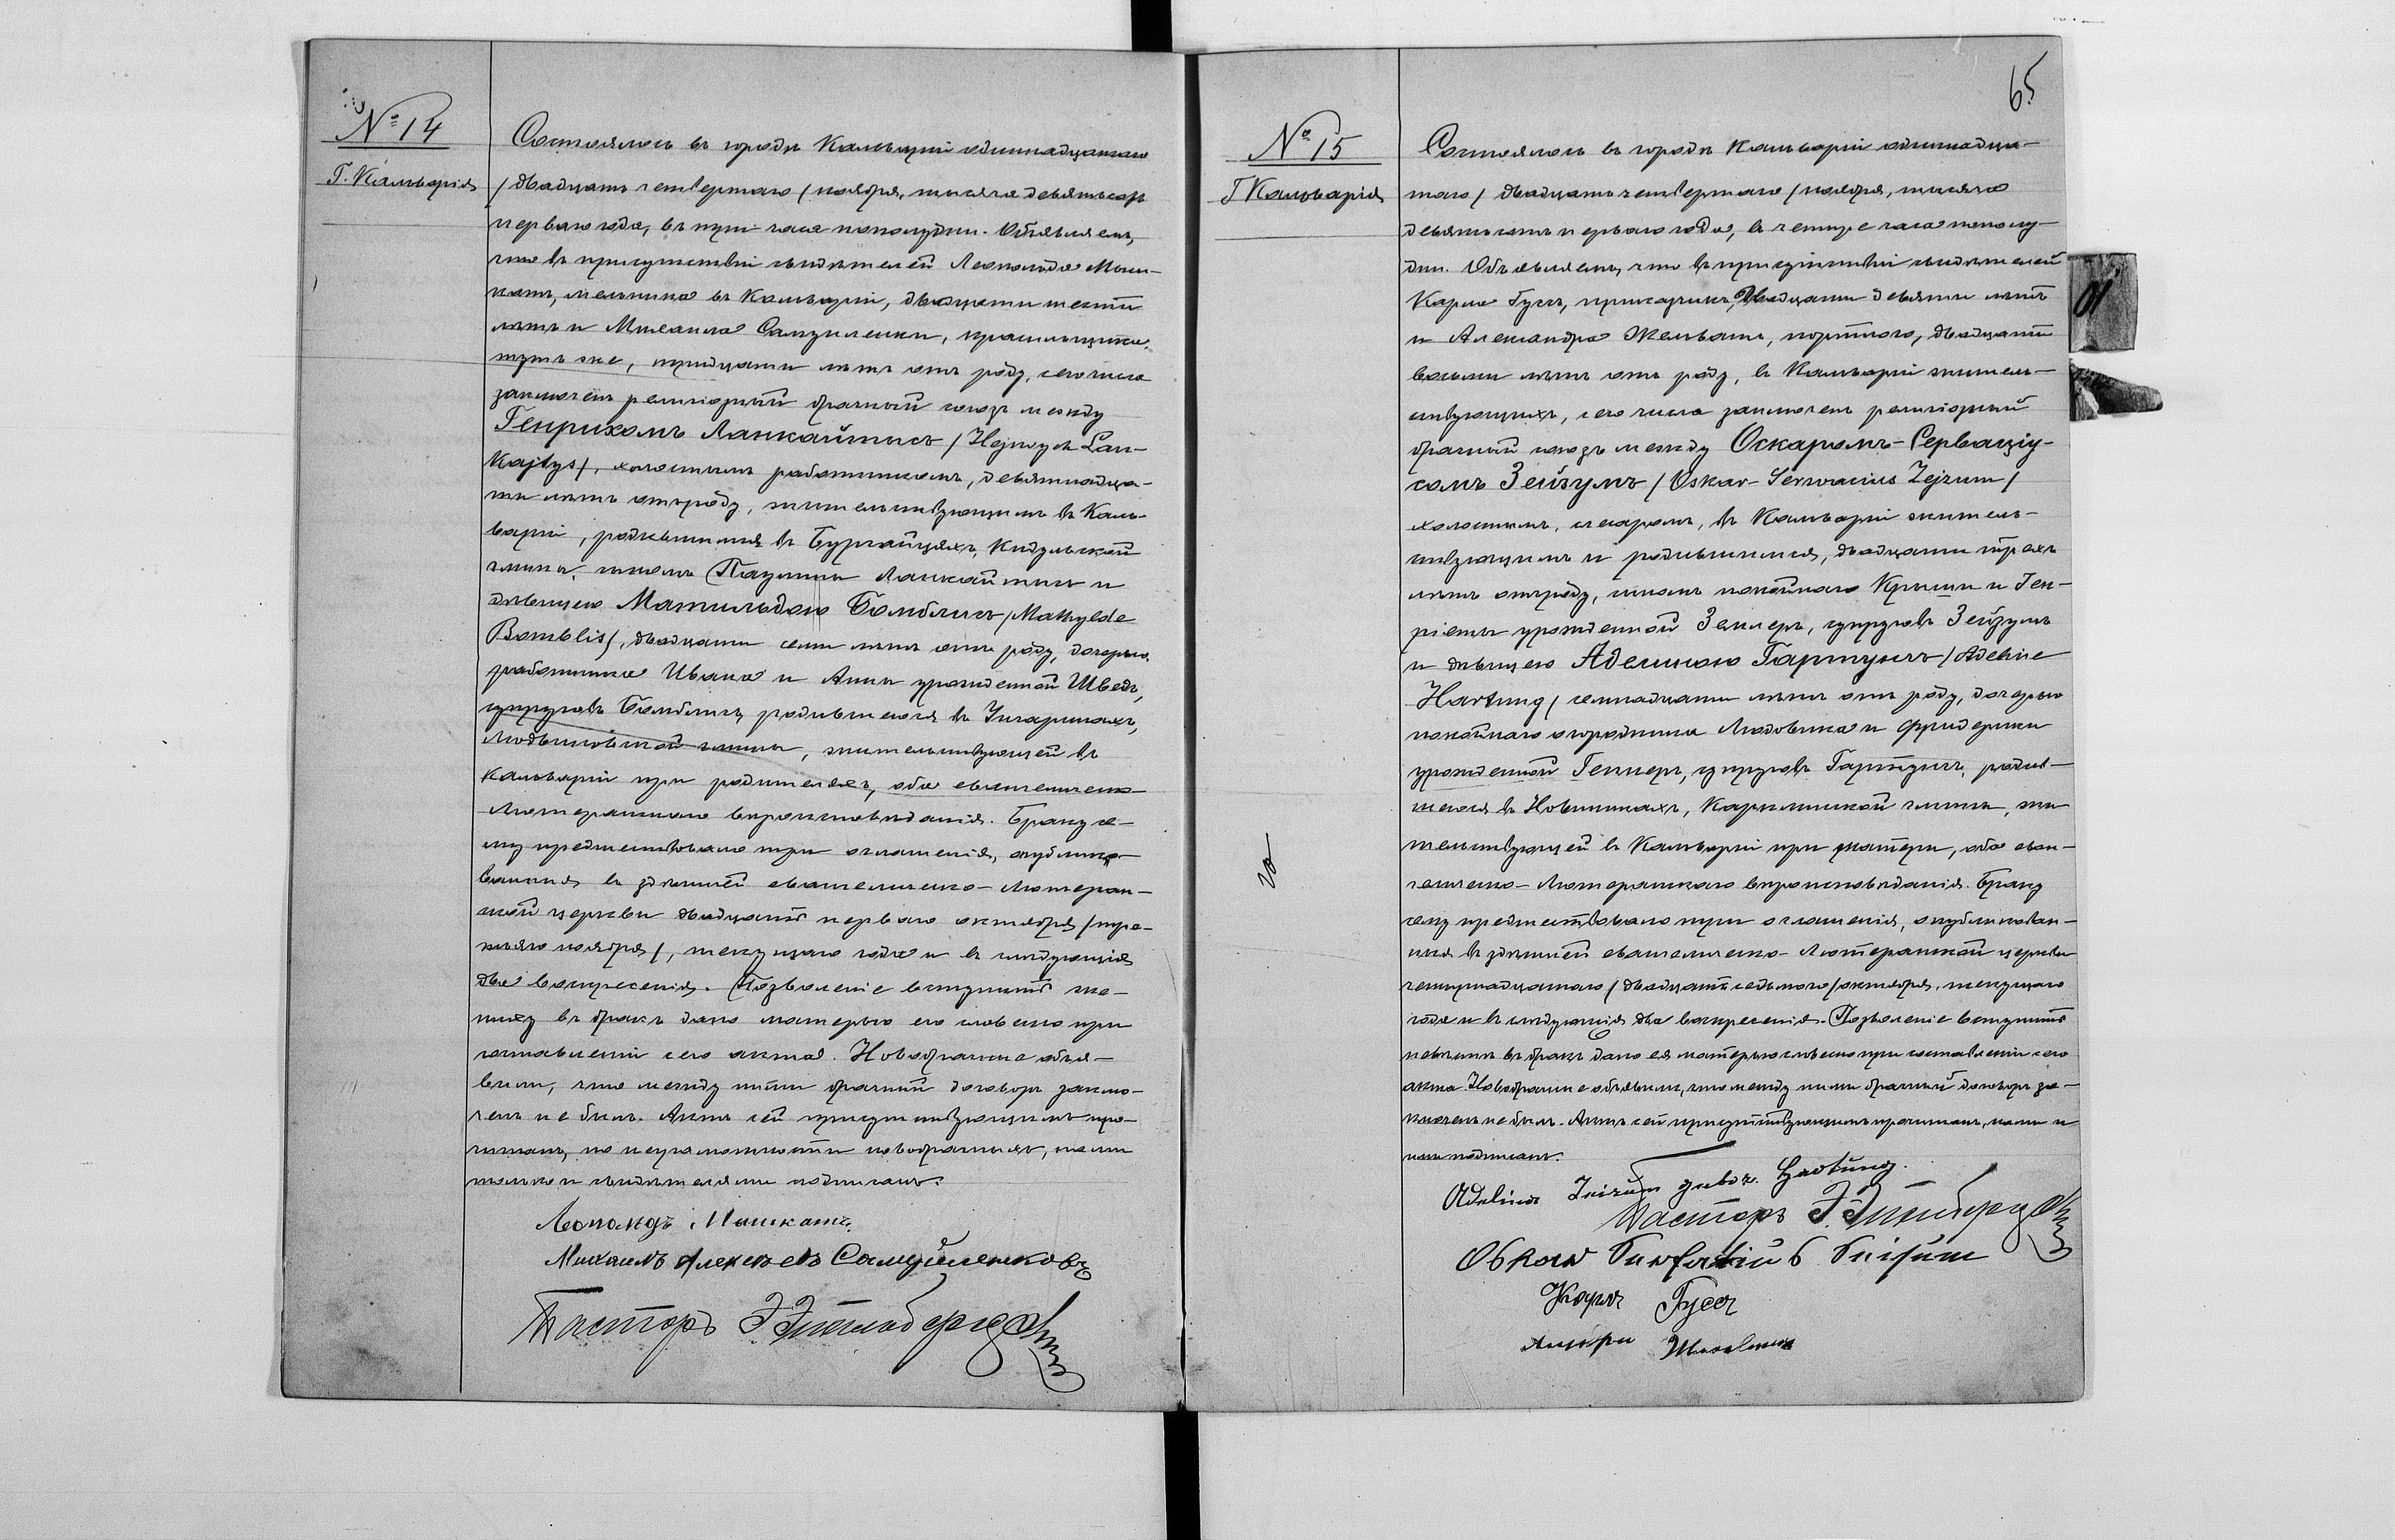 № 14
Г. Кальварія
Состоялось въ городѣ Кальваріи одиннадцатаго
/двадцать четвертаго/ ноября, тысяча девятьсотъ
перваго года, въ три часа пополудни. Объявляемъ,
что въ присутствіи свидѣтелей Леопольда
мельника въ Кальваріи, двадцати шести
лѣтъ и Михаила красильщика
тутъ же, тридцати лѣтъ отъ роду, сего числа
заключенъ религіозный брачный союзъ между
Генрихомъ Ланкайтысъ /Hejnrych Lan-
kajtys/, холостымъ работникомъ, девятнадца-
ти лѣтъ отъ роду, жительствующимъ въ Каль-
варіи, родившимся въ Кидульской
гмины, сыномъ Паулины Ланкайтысъ и
дѣвицею Матильдою Бомблисъ /Mathylde
Bomblis/, двадцати семи лѣтъ отъ роду, дочерью
работника Ивана и Анны урожденной Шведъ,
супруговъ Бомблисъ, родившеюся въ
Людвиновской гмины, жительствующей въ
Кальваріи при родителяхъ, оба евангелическо-
Лютеранскаго вѣроисповѣданія. Браку се-
му предшествовало три оглашенія, опублико-
ванныя въ здѣшней евангелическо-Лютеран-
ской церкви двадцать перваго октября /тре-
тьяго ноября/, текущаго года и въ слѣдующія
два воскресенія. Позволеніе вступить же-
ниху въ бракъ дано матерью его словесно при
составленіи сего акта. Новобрачные объя-
вили, что между ними брачный договоръ заклю-
ченъ не былъ. Актъ сей присутствующимъ про-
читанъ, по неграмотности новобрачныхъ, нами
только и свидѣтелями подписанъ.
Леопольдъ
Михаилъ
Пасторъ
65
№ 15
Г Кальварія
Состоялось въ городѣ Кальваріи одиннадца-
таго /двадцать четвертаго/ ноября, тысяча
девятьсотъ перваго года, въ четыре часа пополу-
дни. Объявляемъ, что въ присутствіи свидѣтелей
Карла Гуссъ, приказчика, двадцати девяти лѣтъ
и Александра портнаго, двадцати
восьми лѣтъ отъ роду, въ Кальваріи житель-
ствующихъ, сего числа заключенъ религіозный
брачный союзъ между Оскаромъ-Серваціу-
сомъ Зейзумъ /Oskar-Serwacius Zejzum/
холостымъ, слесаромъ, въ Кальваріи житель-
ствующимъ и родившимся, двадцати трехъ
лѣтъ отъ роду, сыномъ покойнаго и Ген-
ріеты урожденной супруговъ Зейзумъ
и дѣвицею Аделиною Гартунгъ /Adeline
Hartung/ семнадцати лѣтъ отъ роду, дочерью
покойнаго огородника Людовика и Фридерики
урожденной супруговъ Гартунгъ, родив-
шеюся въ Новинникахъ, гмины, жи-
тельствующей въ Кальваріи при матери, оба еван-
гелическо-Лютеранскаго вѣроисповѣданія. Браку
сему предшествовало три оглашенія, опубликован-
ныя въ здѣшней евангелическо-Лютеранской церкви
четырнадцатаго /двадцать седьмого/ октября, текущаго
года и въ слѣдующія два воскресенія. Позволеніе вступить
невѣстѣ въ бракъ дано ея матерью словесно при составленіи сего
акта. Новобрачные объявили, что между ними брачный договоръ за-
ключенъ не былъ. Актъ сей присутствующимъ прочитанъ, нами и
ими подписанъ.
Adeline Zeizum Hartung.
Пасторъ
Oskar Servatius Seisum
Карлъ Гуссъ